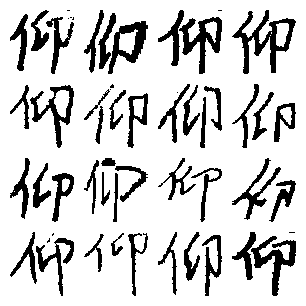 仰仰仰仰
仰仰仰仰
仰仰仰仰
仰仰仰仰